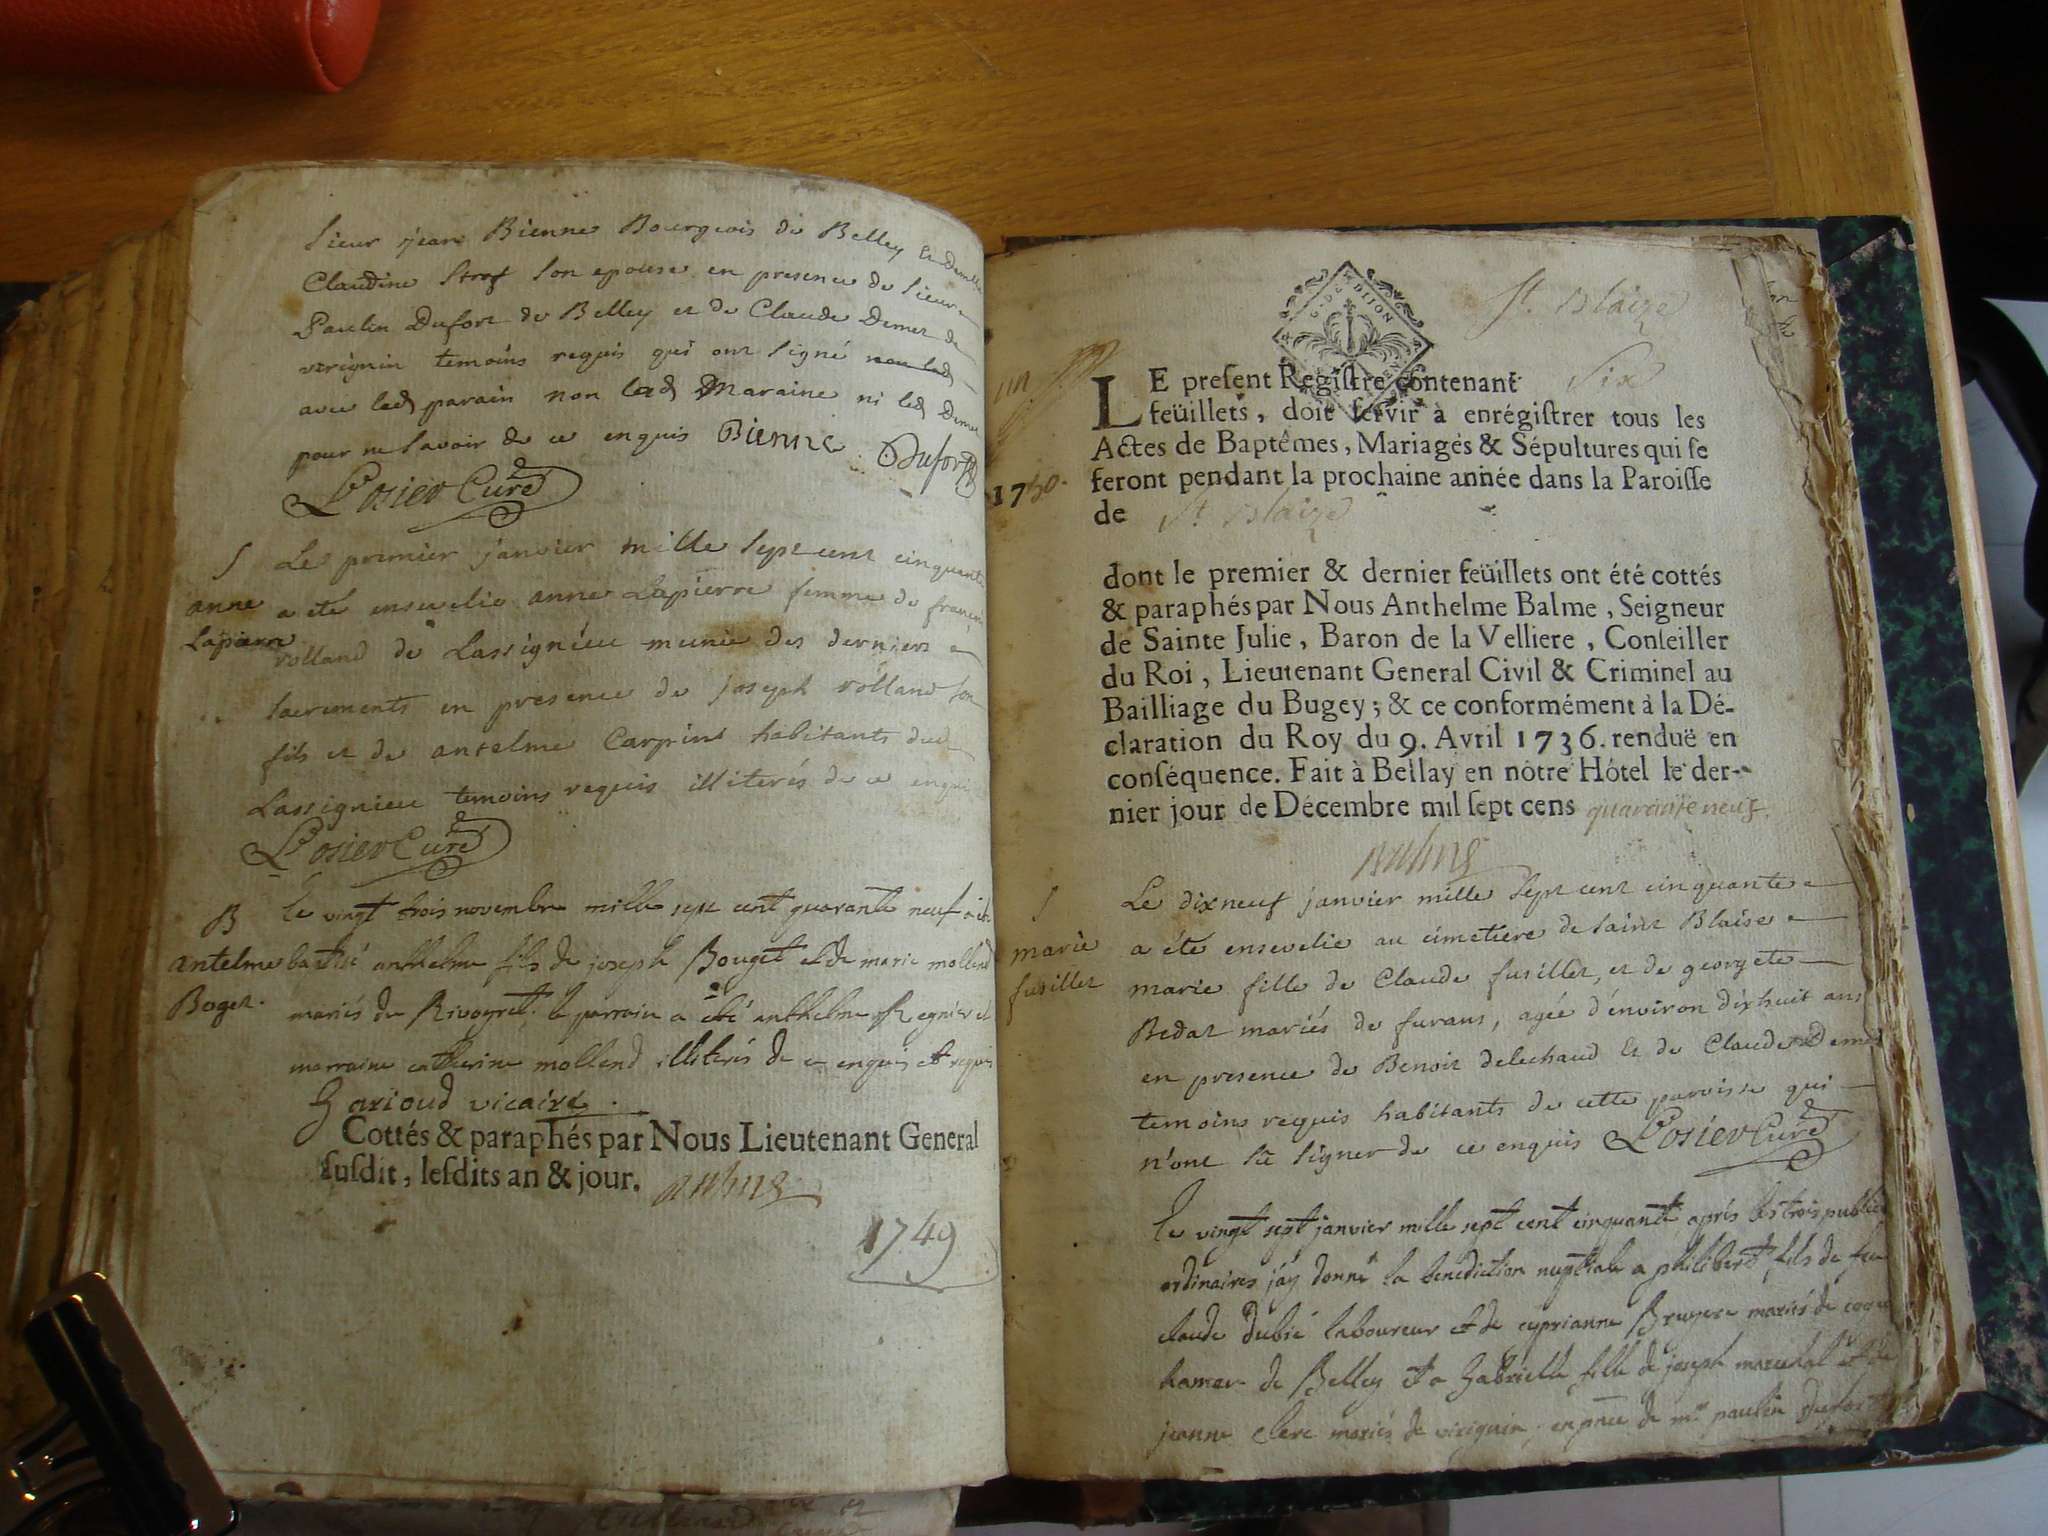 Sieur jean Bienne Bourgeois de Belley et demlle
Claudine son epouse en presence de Sieur
Paulin Dufort de Belley et de Claude Demet de
virignin temoins requis qui ont signé non led
avec led parain non lad Maraine ni led Demet
pour ne savoir de ce enquis Bienne Dufort
Posier Curé
S Le premier janvier mille sept cent cinquante
anne a été ensevelie anne Lapierre femme de françois
Lapierre rolland de Lassignieu munie des derniers
sacrements en presence de joseph rolland son
fils et de antelme Carpint habitants dud
Lassignieu temoins requis illiterés de ce enquis
Posier Curé
B le vingt trois novembre mille sept cent quarante neuf a été
antelme baptisé anthelme fils de joseph Bouget et de marie mollend
Boget. mariés de Rivoyret. le parrain a été anthelme Regnier et
marraine catherine mollend illiterés de ce enquis et requis
Garioud vicaire.
Cottés & paraphés par Nous Lieutenant General
susdit, lesdits an & jour. Balme
1749
St. Blaize
G. DE DIJON
LE present Registre contenant six
feüillets, doit servir à enrégistrer tous les
Actes de Baptêmes, Mariages & Sépultures qui se
feront pendant la prochaine année dans la Paroisse
1750.
de St Blaize
dont le premier & dernier feüillets ont été cottés
& paraphés par Nous Anthelme Balme, Seigneur
de Sainte Julie, Baron de la Velliere, Conseiller
du Roi, Lieutenant General Civil & Criminel au
Bailliage du Bugey; & ce conformément à la Dé-
claration du Roy du 9. Avril 1736. renduë en
conséquence. Fait à Bellay en nôtre Hôtel le der-
nier jour de Décembre mil sept cens quarante neuf.
Balme
S Le dixneuf janvier mille sept cent cinquante
marie a été ensevelie au cimetiere de saint Blaise
fusillet marie fille de Claude fusillet, et de georgete
Bedat mariés de furans, agée d'environ dixhuit ans
en presence de Benoit delechaud et de Claude Demet
temoins requis habitants de cette paroisse qui
n'ont sû signer de ce enquis Posier Curé
Le vingt sept janvier mille sept cent cinquante après les trois public
ordinaires j'ay donné la benediction nuptiale a philibert fils de feu
claude dubié laboureur et de cyprianne Bruyere mariés de
de Belley et a Gabrielle fille de joseph marechal et de
jeanne Clerc mariés de virignin, en pnce de mre paulin Dufort